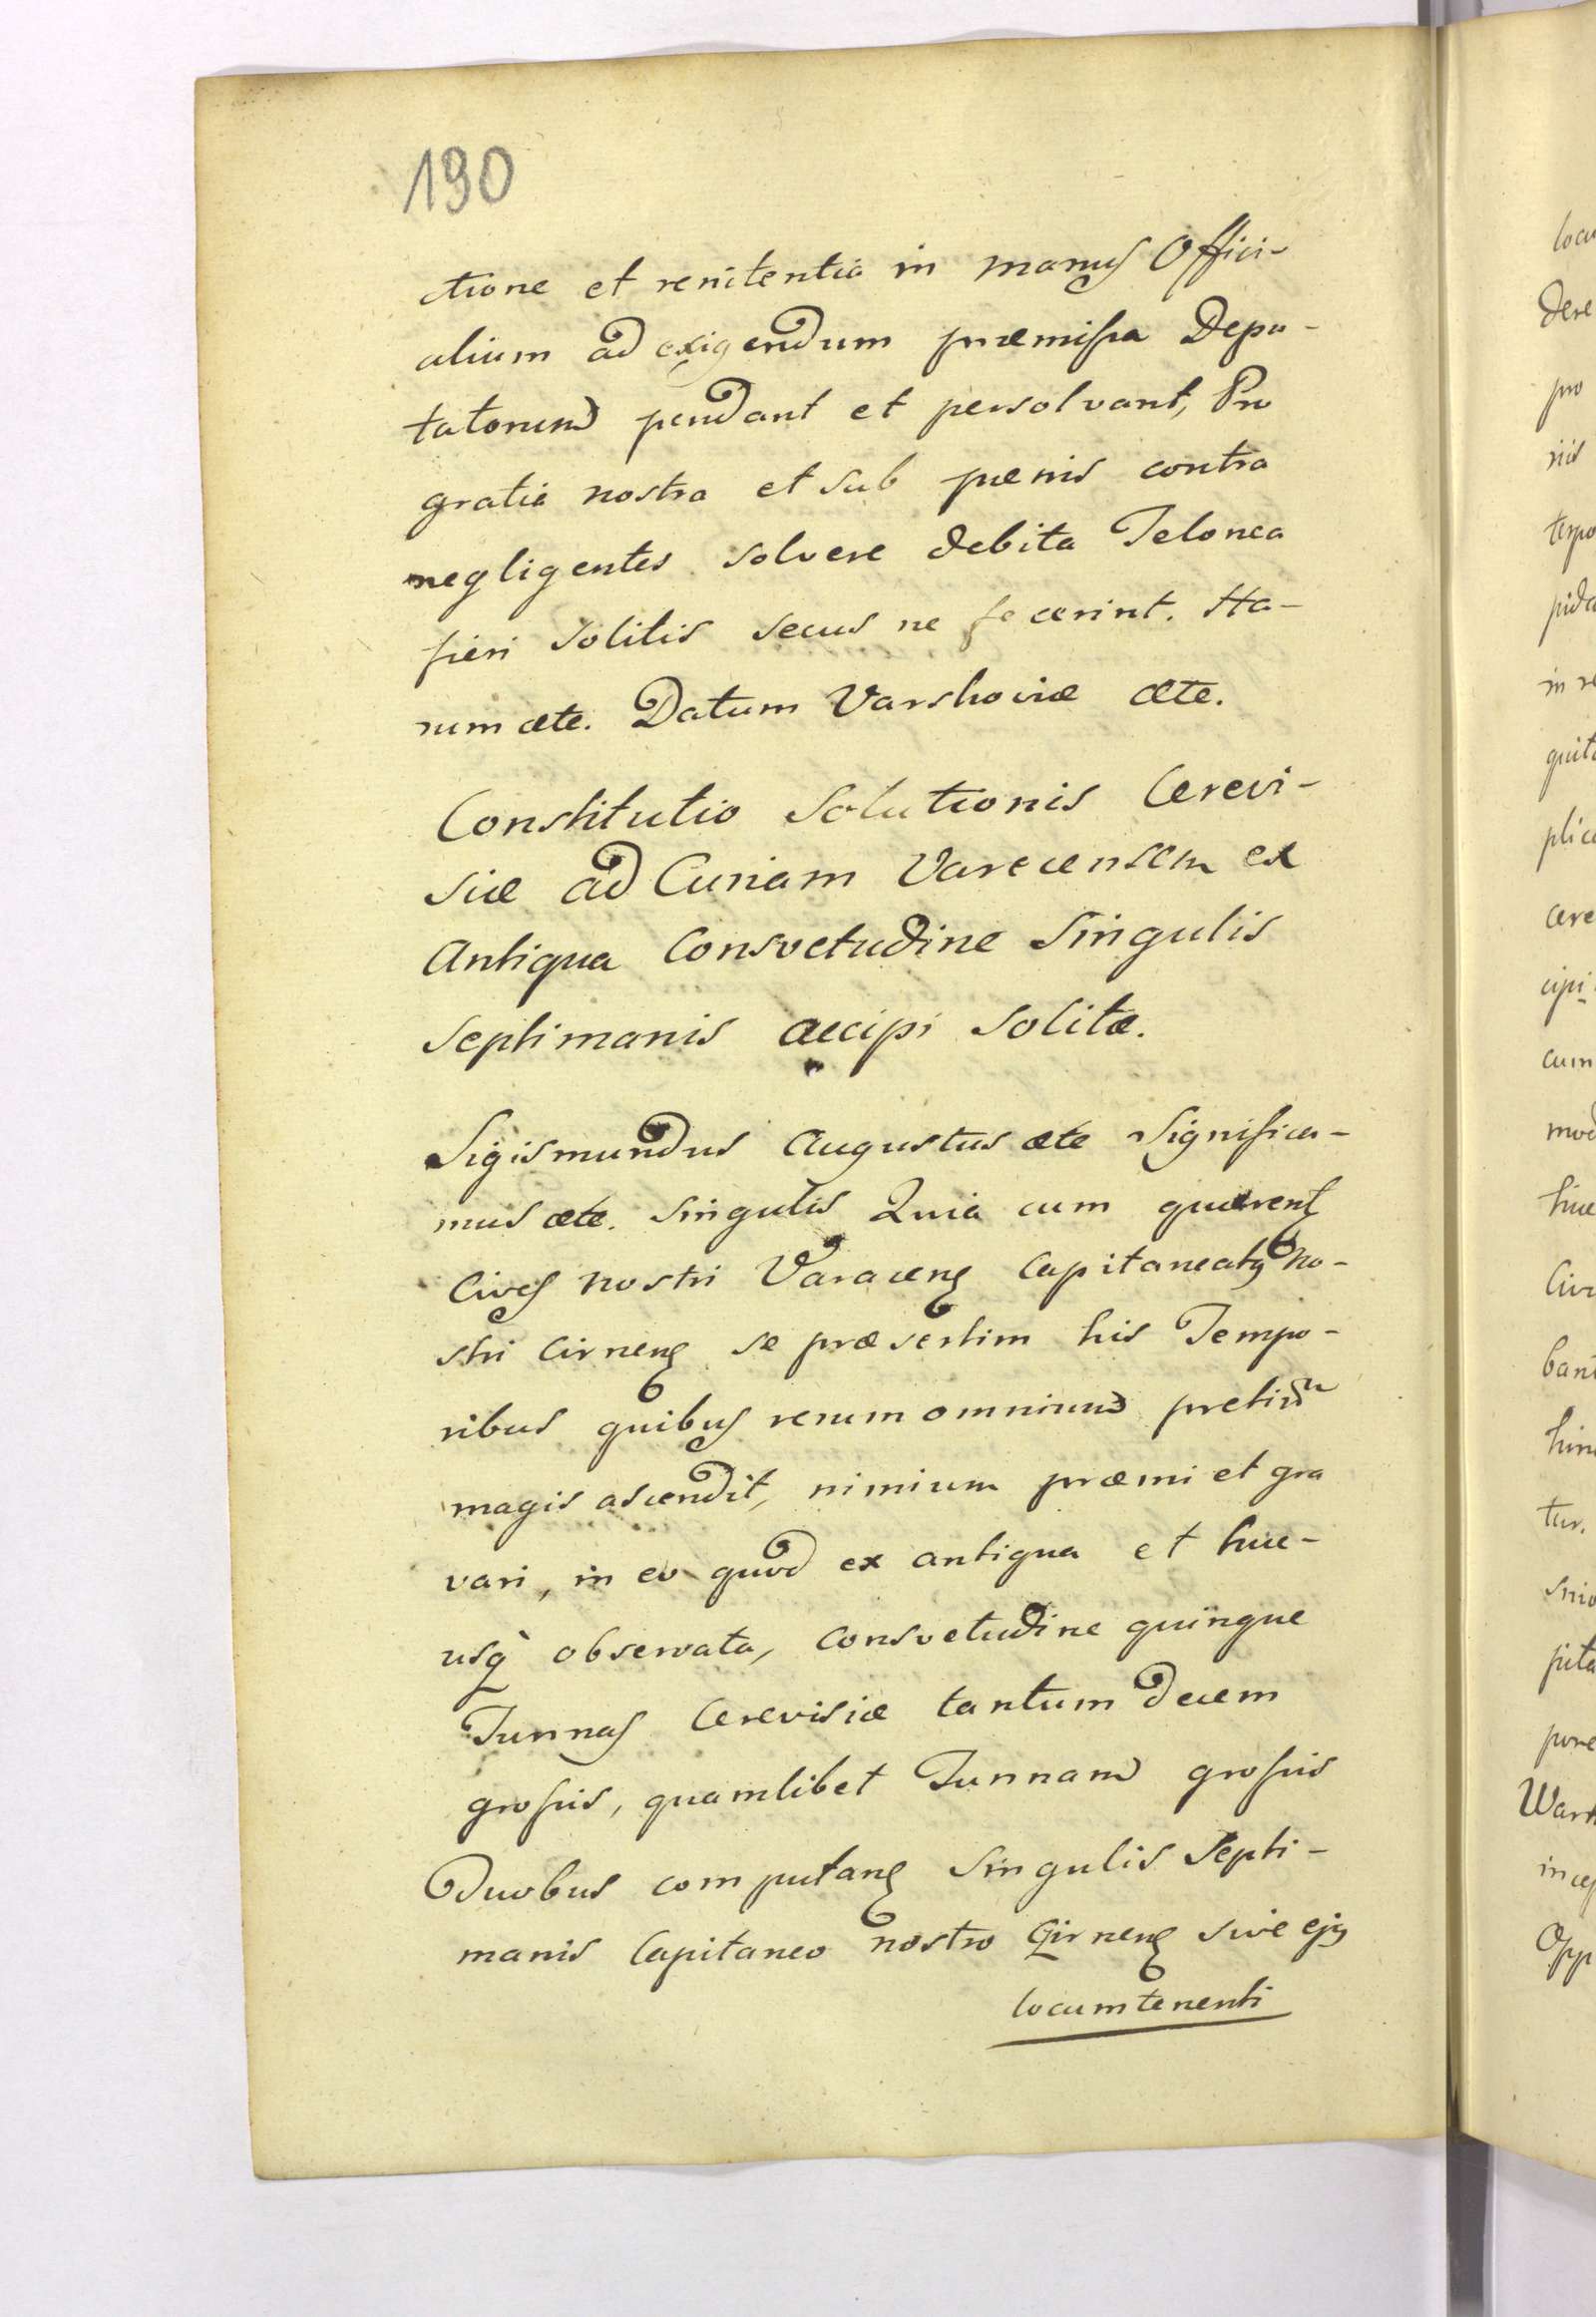 190
ctione et renitentia in manus Offici-
alium ad exigendum præmissa Depu-
tatorum pendant et persolvant, Pro
gratia nostra et sub pænis contra
negligentes solvere debita Telonea
fieri solitis secus ne fecerint. Ha-
rum æte. Datum Varshoviæ æte.
Constitutio Solutionis Cerevi-
siæ ad Curiam Varecensem ex
Antiqua Consvetudine Singulis
Septimanis accipi Solitæ.
Sigismundus Augustus æte Significa-
mus æte. Singulis Quia cum quærent
Cives nostri Varacens Capitaneatus No-
stri Cirnens se præsertim his Tempo-
ribus quibus rerum omnium pretiũ
magis ascendit, nimium præmi et gra
vari, in eo quod ex antiqua et huc-
usq observata, consvetudine quinque
Tunnas Cerevisiæ tantum decem
grossis, quamlibet Tunnam grossis
Duobus computans Singulis Septi-
manis Capitaneo nostro Cirnens sive ejus
locumtenenti
locu
dere
pro
riis
tempo
pida
in re
quita
plica
cere
cipi
cum
mod
hinc
Civi
bant
hinc
tur.
pore
Wart
incep
Opp